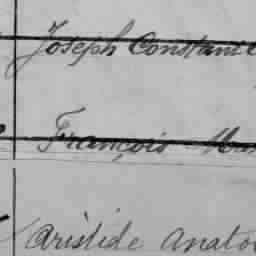 Joseph Constant
François
Aristide Anato